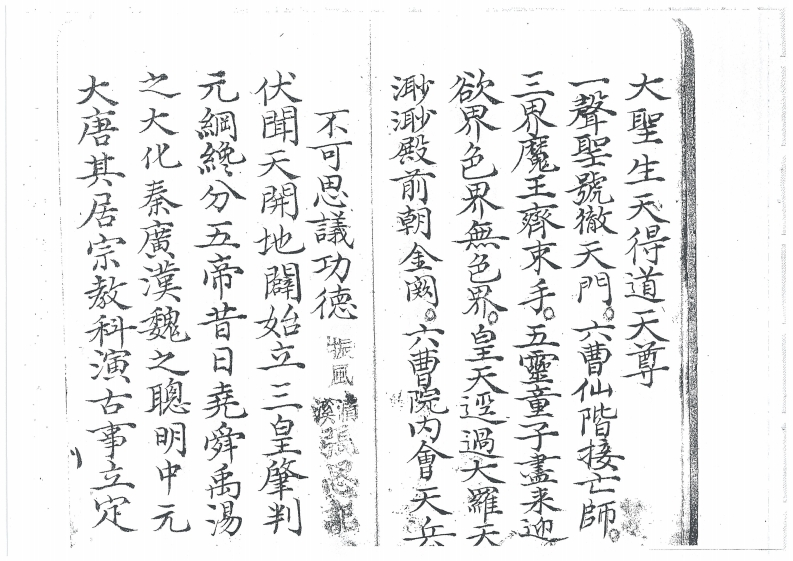 大聖生天得道天尊
一聲聖號徹天門。六曹仙階接亡師。
三界魔王齊束手。五靈童子盡来迎
欲界色界無色界。皇天逕過大羅天
渺渺殿前朝金闕。六曹院内會天兵
不可思議功德
振風
清溪
張
伏聞天開地闢始立三皇肇判
元綱纔分五帝昔日堯舜禹湯
之大化秦廣漢魏之聰明中元
大唐其居宗教科演古事立定